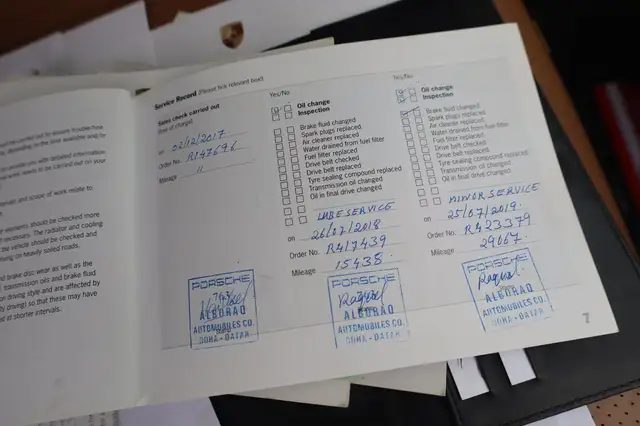 Service Record (Please tick relevant box)
Sales check carried out
(free of charge)
on 02/12/2017
Order No. R147696
Mileage 11
PORSCHE
ALBORAQ
AUTOMOBILES CO.
DOHA - QATAR
Yes/No
Oil change
Inspection
Brake fluid changed
Spark plugs replaced
Air cleaner replaced
Water drained from fuel filter
Fuel filter replaced
Drive belt checked
Drive belt replaced
Tyre sealing compound replaced
Transmission oil changed
Oil in final drive changed
LUBE SERVICE
on 26/07/2018
Order No. R417439
Mileage 15438
PORSCHE
ALBORAQ
AUTOMOBILES CO.
DOHA - QATAR
Yes/No
Oil change
Inspection
Brake fluid changed
Spark plugs replaced
Air cleaner replaced
Water drained from fuel filter
Fuel filter replaced
Drive belt checked
Drive belt replaced
Tyre sealing compound replaced
Transmission oil changed
Oil in final drive changed
MINOR SERVICE
on 25/07/2019
Order No. R423379
Mileage 29067
PORSCHE
ALBORAQ
AUTOMOBILES CO.
DOHA - QATAR
7
with detailed information
needs to be carried out on your
and scope of work relate to
elements should be checked more
necessary. The radiator and cooling
the vehicle should be checked and
on heavily soiled roads.
brake disc wear as well as the
transmission oils and brake fluid
driving style and are affected by
driving) so that these may have
at shorter intervals.